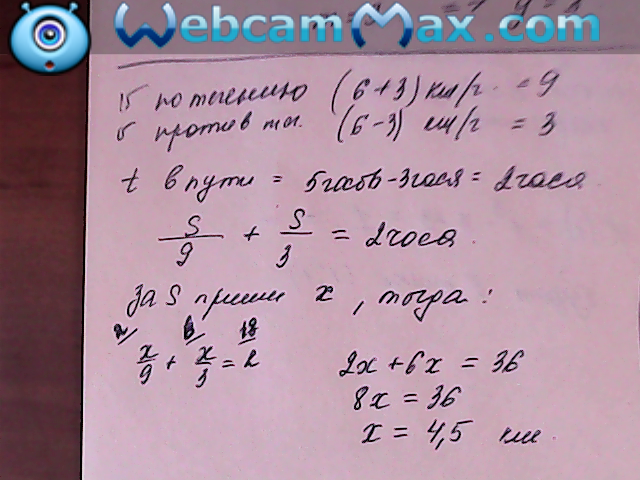 WebcamMax.com
по течению (6+3) км/г. = 9
против теч. (6-3) км/г = 3
t в пути = 5часов-3часа = 2часа
S/9 + S/3 = 2часа.
За S прими x, тогда:
2/ 6/ 18/
x/9 + x/3 = 2
2x + 6x = 36
8x = 36
x = 4,5 км.